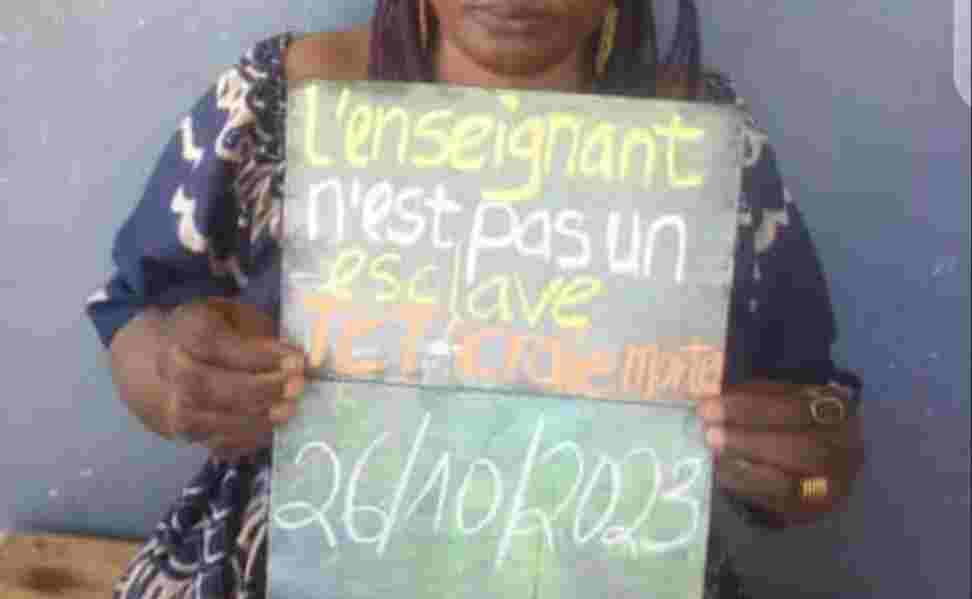 l'enseignant
n'est pas un
esclave
TCT + craie morte
26/10/2023